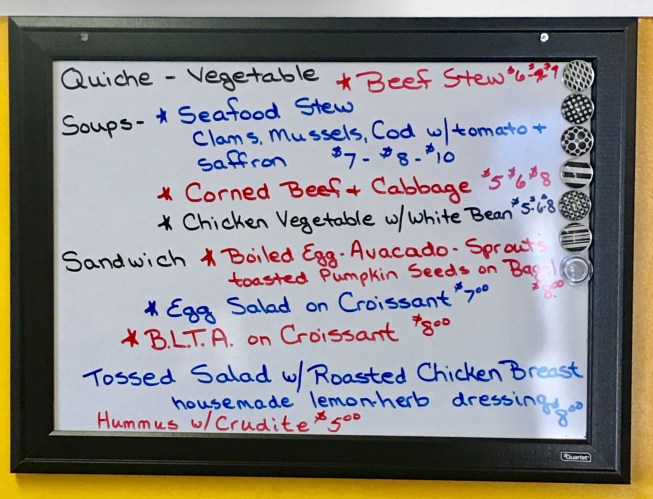 Quiche - Vegetable * Beef Stew $6-$7-$9
Soups- * Seafood Stew
Clams, Mussels, Cod w/tomato +
saffron $7 - $8 - $10
* Corned Beef + Cabbage $5 $6 $8
* Chicken Vegetable w/White Bean $5-6-8
Sandwich * Boiled Egg - Avacado - Sprouts
toasted Pumpkin Seeds on Bagel
$8.00
* Egg Salad on Croissant $7.00
* B.L.T.A. on Croissant $8.00
Tossed Salad w/ Roasted Chicken Breast
housemade lemon-herb dressing $8.00
Hummus w/Crudite $5.00
Quartet